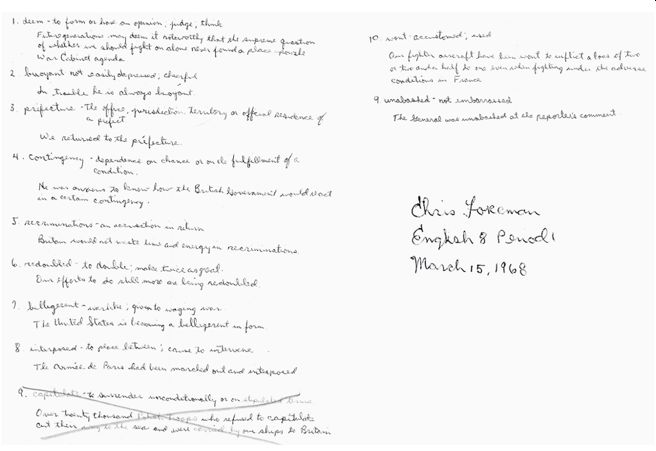 1. deem - to form or have an opinion; judge, think
Future generations may deem it noteworthy that the supreme question
of whether we should fight on alone never found a place on the
War Cabinet agenda
2 buoyant not easily depressed; cheerful
In trouble he is always buoyant.
3. prefecture - The office, jurisdiction, territory or official residence of
a prefect
We returned to the prefecture.
4. Contingency - dependence on chance or on the fulfillment of a
condition.
He was anxious to know how the British Government would react
in a certain contingency.
5 recriminations - an accusation in return
Britain would not waste time and energy on recriminations.
6. redoubled - to double; make twice as great.
Our efforts to do still more are being redoubled
7. belligerent - warlike; given to waging war.
The United States is becoming a belligerent in form.
8. interposed - to place between; cause to intervene
The Armée de Paris had been marched out and interposed
9. capitulate - to surrender unconditionally or on stipulated terms
Over twenty thousand Polish troops who refused to capitulate
cut their way to the sea and were carried by our ships to Britain
10. wont - accustomed; used
Our fighter aircraft have been wont to inflict a loss of two
or two and a half to one even when fighting under the adverse
conditions in France
9. unabashed - not embarrassed
The General was unabashed at the reporter's comment.
Chris Foreman
English 8 Period 1
March 15, 1968